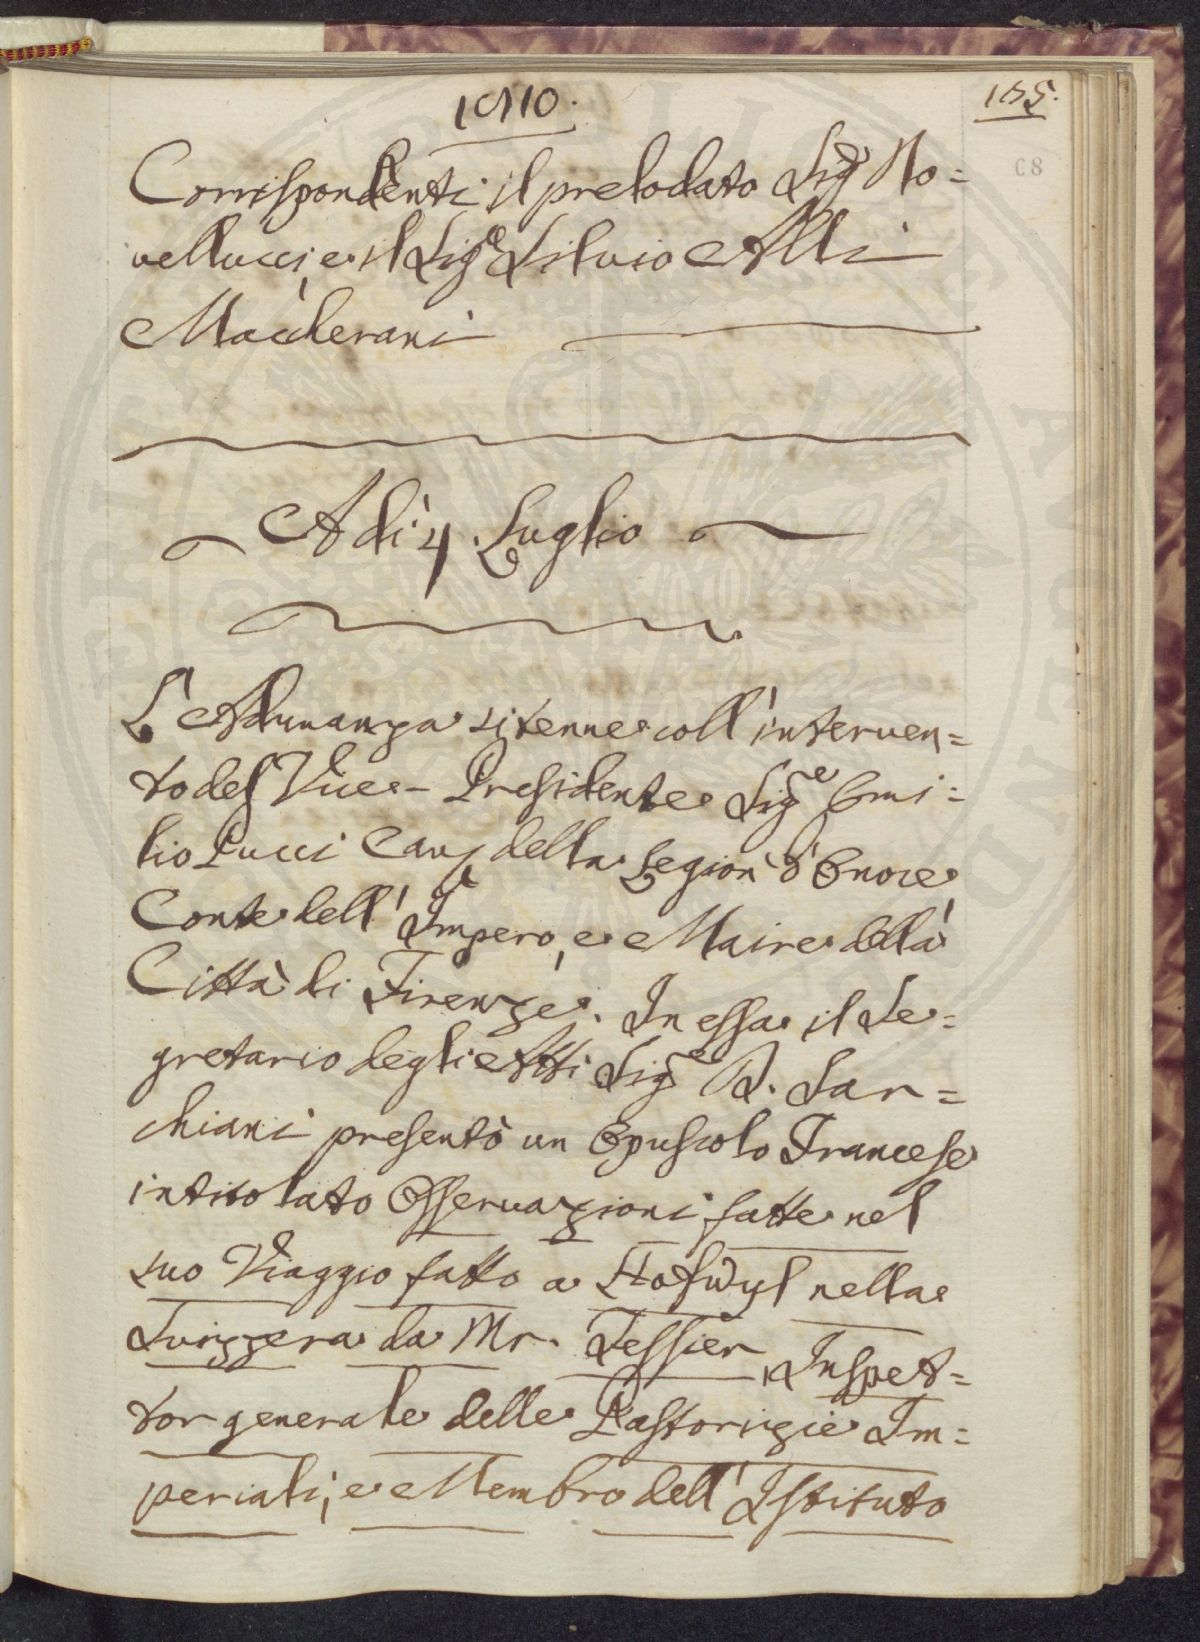 1810.
185.
68
Corrispondenti il prelodato Sig.e No=
vellucci, e il Sig.e Silvio Alli
Maccherani
Adì 4. Luglio
L'Adunanza si tenne coll'interven=
to del Vice-Presidente Sig.e Emi=
lio Pucci Cav. della Legion d'Onore
Conte dell'Impero, e Maire della
Città di Firenze. In essa il Se=
gretario degli Atti Sig.e D. Sar=
chiani presentò un Opuscolo Francese
intitolato Osservazioni fatte nel
suo Viaggio fatto a Hofwyl nella
Svizzera da Mr. Tessier, Inspet=
tor generale delle Pastorizie Im=
periali, e Membro dell'Istituto